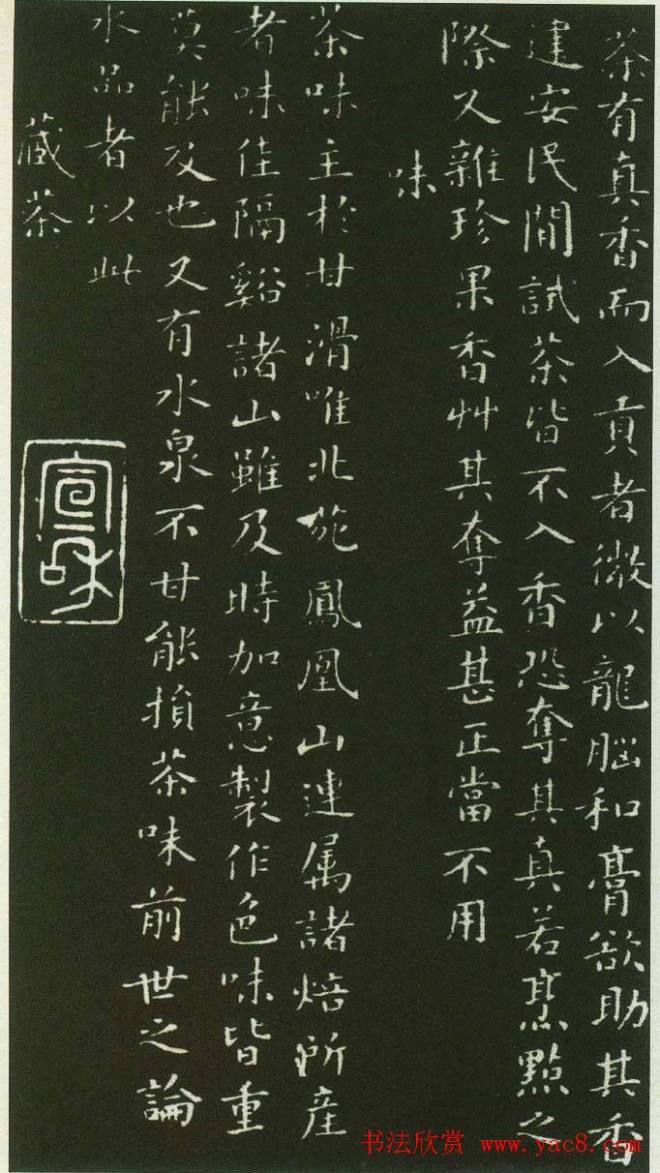 茶有真香而入貢者微以龍腦和膏欲助其香
建安民間試茶皆不入香恐奪其真若烹點之
際又雜珍果香艸其奪益甚正當不用
味
茶味主於甘滑唯北苑鳳凰山連属諸焙所産
者味佳隔谿諸山雖及時加意製作色味皆重
莫能及也又有水泉不甘能損茶味前世之論
水品者以此
藏茶
宣和
书法欣赏 www.yac8.com